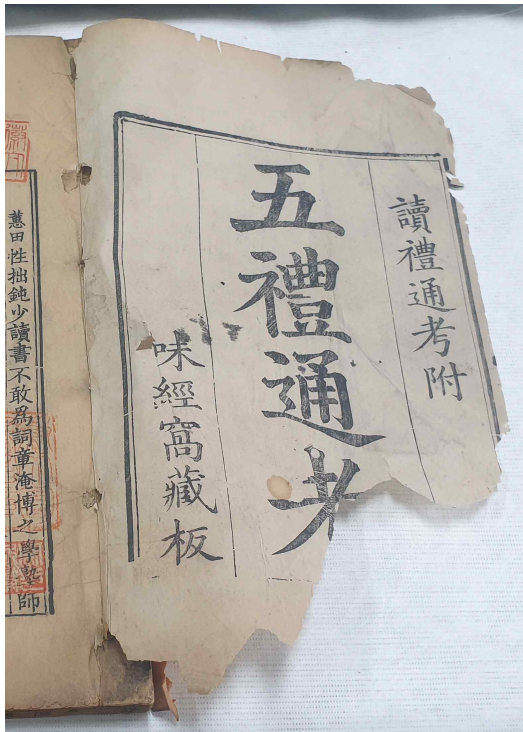 讀禮通考附
五禮通考
味經窩藏板
蕙田性拙鈍少讀書不敢爲詞章淹博之學塾師